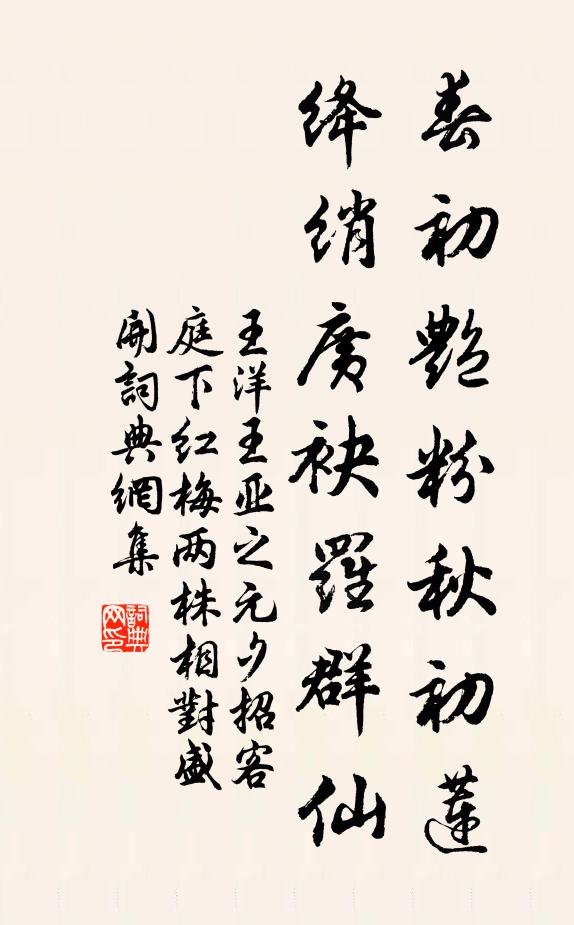 春初艷粉秋初蓮
绛绡廣袂羅群仙
王洋王亚之元夕招客
庭下红梅两株相對盛
開詞典網集
詞典
网印